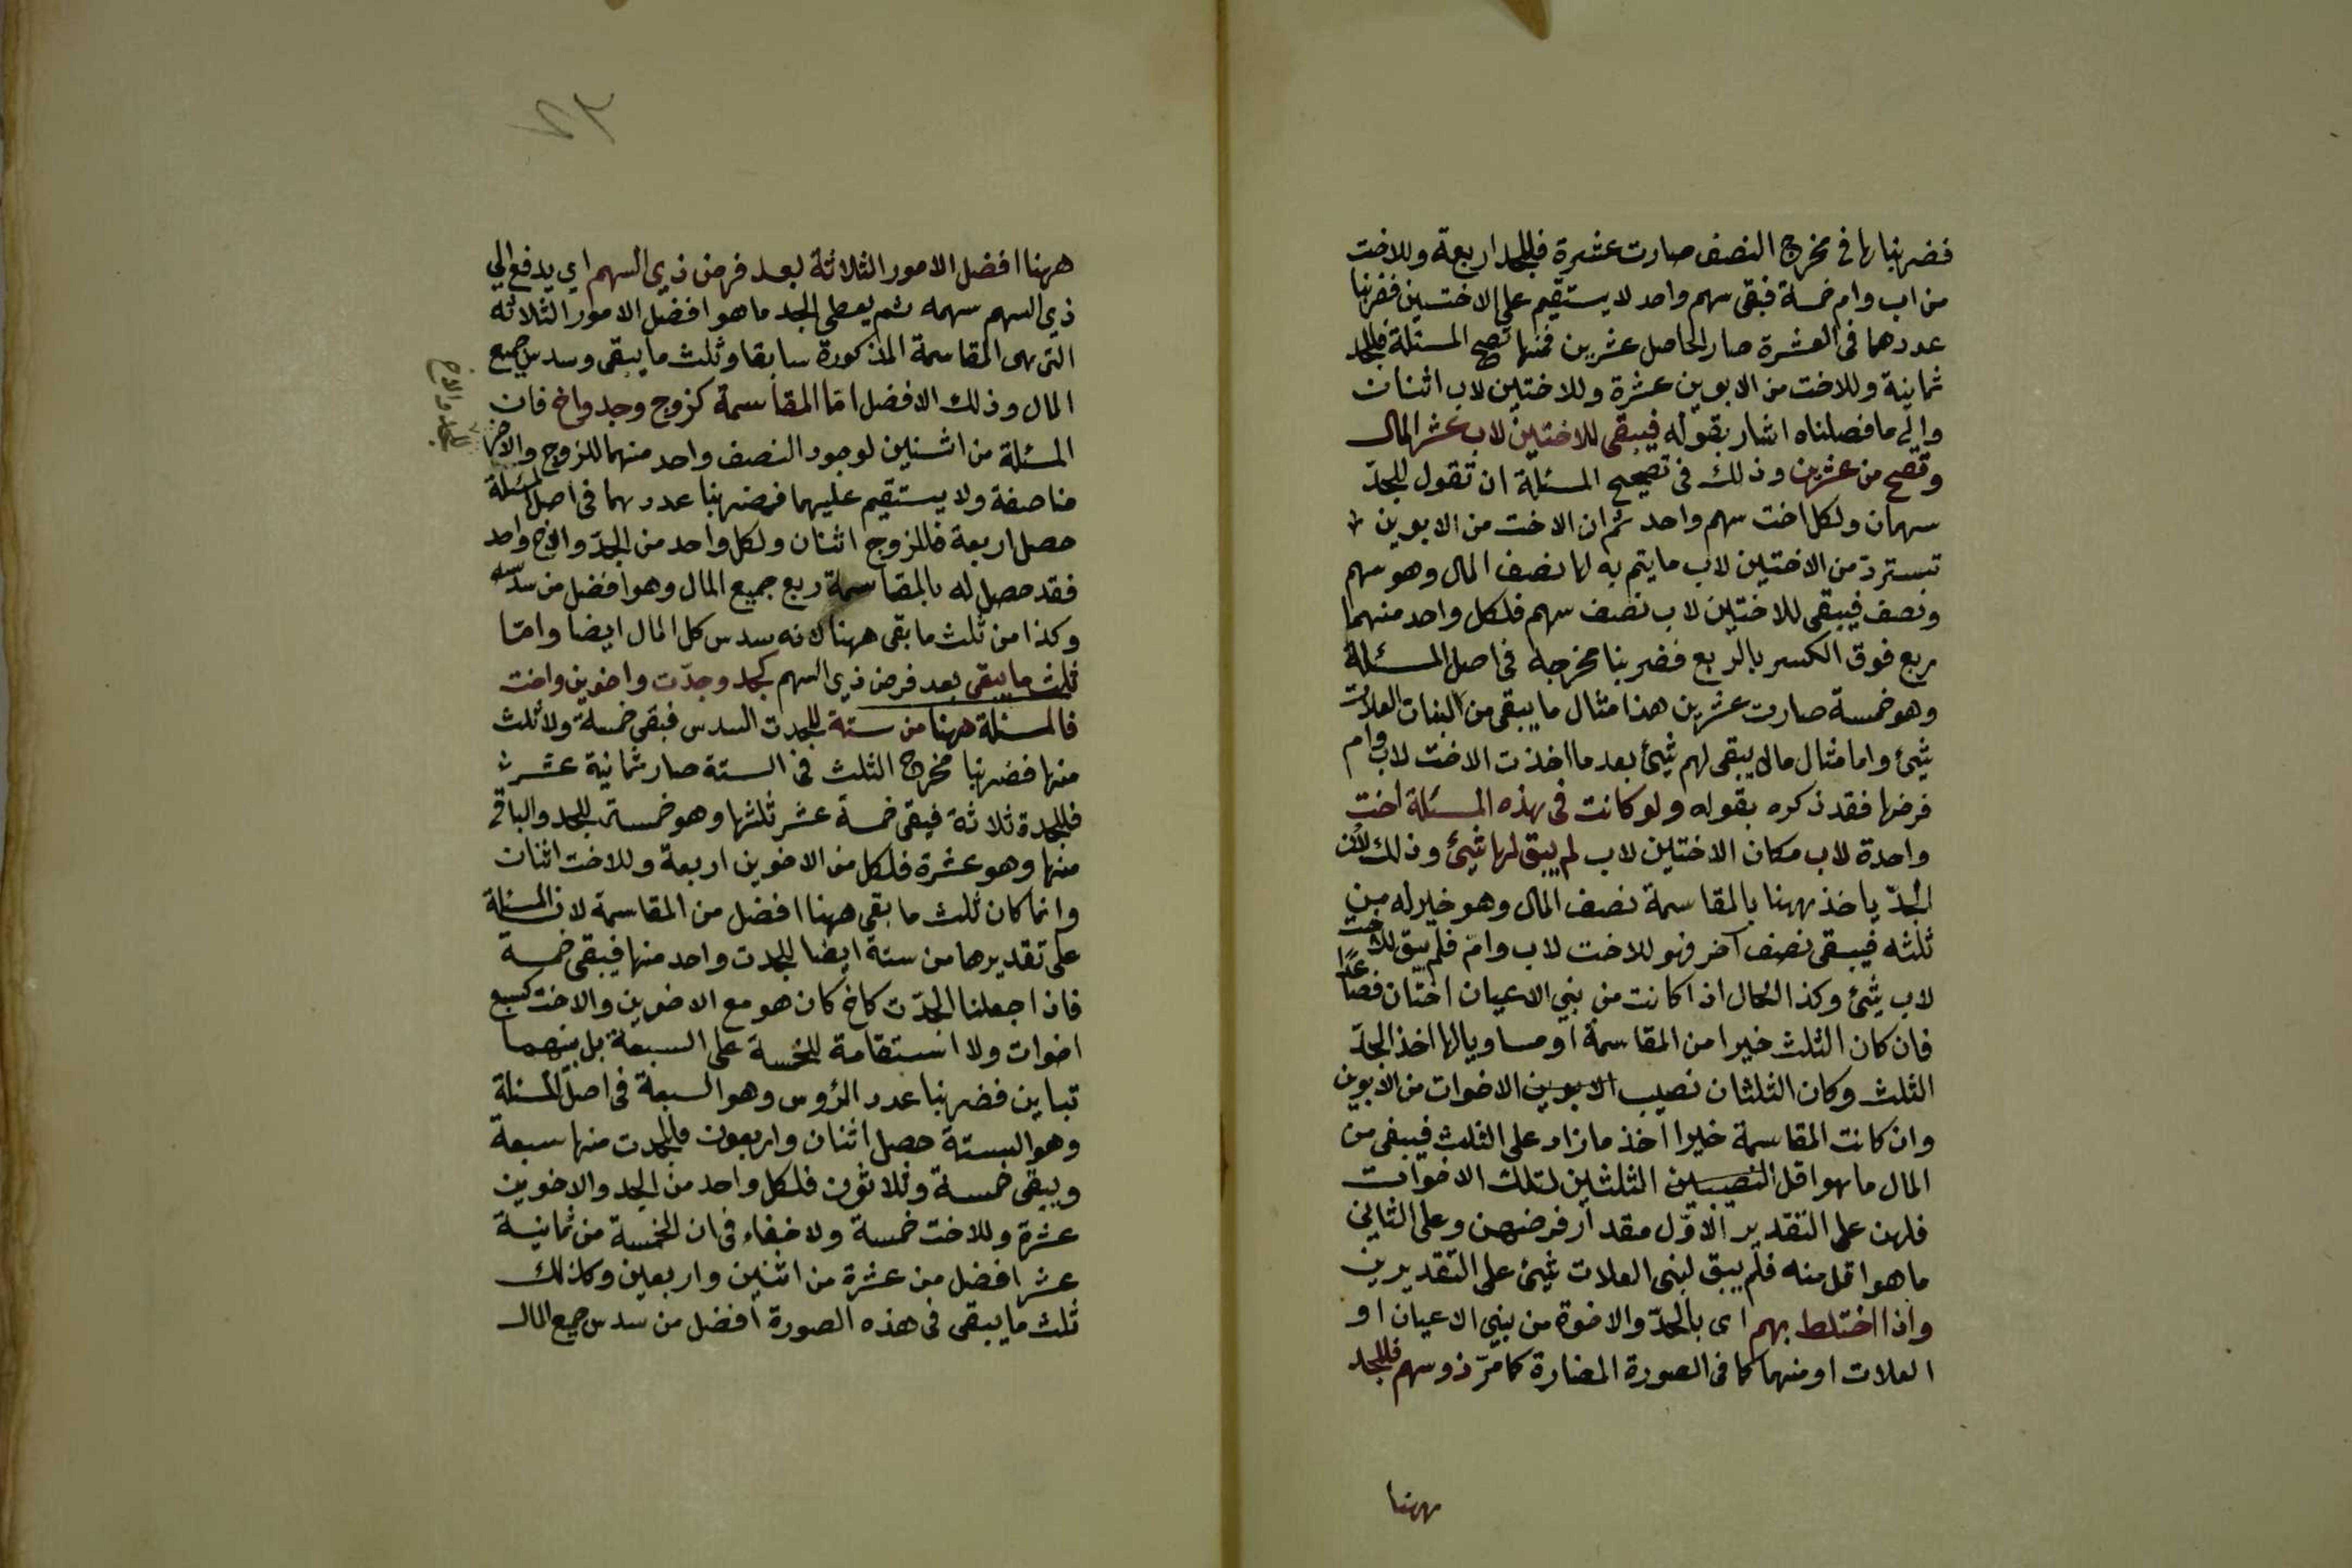 فضربناها في مخرج النصف صارت عشرة فللجد اربعة وللاخت
من اب وام خمسة فبقى سهم واحد لا يستقيم على الاختين فضربنا
عددهما فى العشرة صار الحاصل عشرين فمنها تصح المسئلة فللجد
ثمانية وللاخت من الابوين عشرة وللاختين لاب اثنان
والى ما فصلناه اشار بقوله فيبقى للاختين لاب عشر المال
وتصح من عشرين وذلك فى تصحيح المسئلة ان تقول للجدّ
سهمان ولكل اخت سهم واحد ثم ان الاخت من الابوين
تستردّ من الاختين لاب ما يتم به لها نصف المال وهو سهم
ونصف فيبقى للاختين لاب نصف سهم فلكل واحد منهما
ربع فوق الكسر بالربع فضربنا مخرجه فى اصل المسئلة
وهو خمسة صارت عشرين هذا مثال ما يبقى من البنات العلات
شيئ واما مثال ما لا يبقى لهم شيئ بعد ما اخذت الاخت لاب وام
فرضها فقد ذكره بقوله ولو كانت فى هذه المسئلة اخت
واحدة لاب مكان الاختين لاب لم يبق لها شيئ وذلك لان
الجدّ ياخذ ههنا بالمقاسمة نصف المال وهو خير له من
ثلثه فيبقى نصف آخر فهو للاخت لاب وام فلم يبق للاخت
لاب شيئ وكذا الحال اذا كانت من بني الاعيان اختان فصاعدًا
فان كان الثلث خيرا من المقاسمة او مساويا لها اخذ الجدّ
الثلث وكان الثلثان نصيب الابوين الاخوات من الابوين
وان كانت المقاسمة خيرا اخذ ما زاد على الثلث فيبقى من
المال ما هو اقل النصيبين الثلثين لتلك الاخوات
فلهن على التقدير الاوّل مقدار فرضهن وعلى الثاني
ما هو اقل منه فلم يبق لبنى العلات شيئ على التقديرين
واذا اختلط بهم اى بالجدّ والاخوة من بني الاعيان او
العلات او منهما كما فى الصورة المضارة كما مرّ ذو سهم فللجد
ههنا
ههنا افضل الامور الثلاثة بعد فرض ذي السهم اي يدفع الي
ذي السهم سهمه ثم يعطى الجد ما هو افضل الامور الثلاثه
التى هى المقاسمة المذكورة سابقا وثلث ما يبقى وسدس جميع
المال وذلك الافضل امّا المقاسمة كزوج وجد واخ فان
المسئلة من اثنين لوجود النصف واحد منهما للزوج والاخر
للجد والاخ
مناصفة ولا يستقيم عليهما فضربنا عددهما فى اصل المسئلة
حصل اربعة فللزوج اثنان ولكل واحد من الجدّ والاخ واحد
فقد حصل له بالمقاسمة ربع جميع المال وهو افضل من سدسه
وكذا من ثلث ما بقى ههنا لانه سدس كل المال ايضا وامّا
ثلث ما يبقى بعد فرض ذي السهم كجد وجدّت واخوين واخت
فالمسئلة ههنا من ستة للجدت السدس فبقى خمسة ولا ثلث
منها فضربنا مخرج الثلث فى الستة صار ثمانية عشر
فللجدة ثلاثة فيقى خمسة عشر ثلثها وهو خمسة للجد والباقى
منها وهو عشرة فلكل من الاخوين اربعة وللاخت اثنان
وانما كان ثلث ما بقى ههنا افضل من المقاسمة لان المسئلة
على تقديرها من ستة ايضا للجدت واحد منها فيبقى خمسة
فاذا جعلنا الجدّت كاخ كان هو مع الاخوين والاخت كسبع
اخوات ولا استقامة للخمسة على السبعة بل بينهما
تباين فضربنا عدد الرؤس وهو السبعة فى اصل المسئلة
وهو الستة حصل اثنان واربعون فللجدت منها سبعة
ويبقى خمسة وثلاثون فلكل واحد من الجد والاخوين
عشرة وللاخت خمسة ولا خفاء فى ان الخمسة من ثمانية
عشر افضل من عشرة من اثنين واربعين وكذلك
ثلث ما يبقى فى هذه الصورة افضل من سدس جميع المال